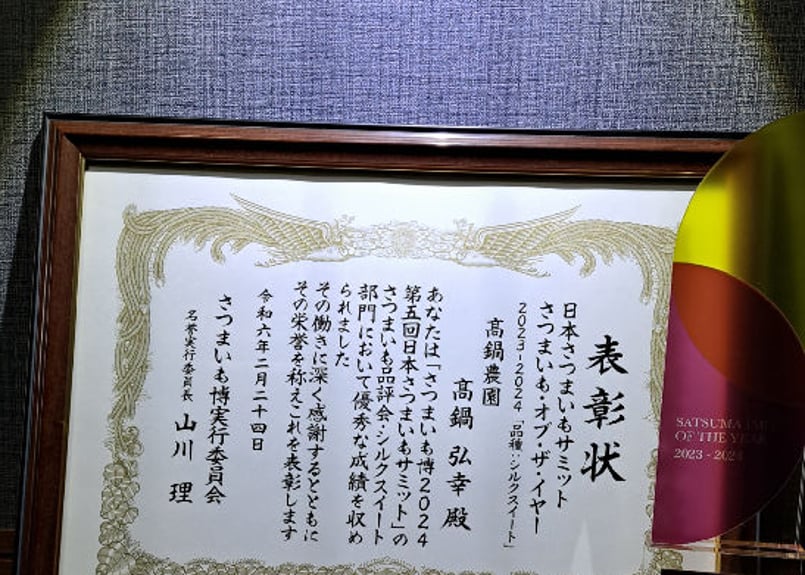 表彰状
日本さつまいもサミット
さつまいも・オブ・ザ・イヤー
2023-2024「品種・シルクスイート」
髙鍋農園
髙鍋 弘幸 殿
あなたは「さつまいも博2024
第五回日本さつまいもサミット」の
さつまいも品評会・シルクスイート
部門において優秀な成績を収め
られました
その働きに深く感謝するとともに
その栄誉を称えこれを表彰します
令和六年二月二十四日
さつまいも博実行委員会
名誉実行委員長 山川 理
SATSUMAIMO
OF THE YEAR
2023 - 2024